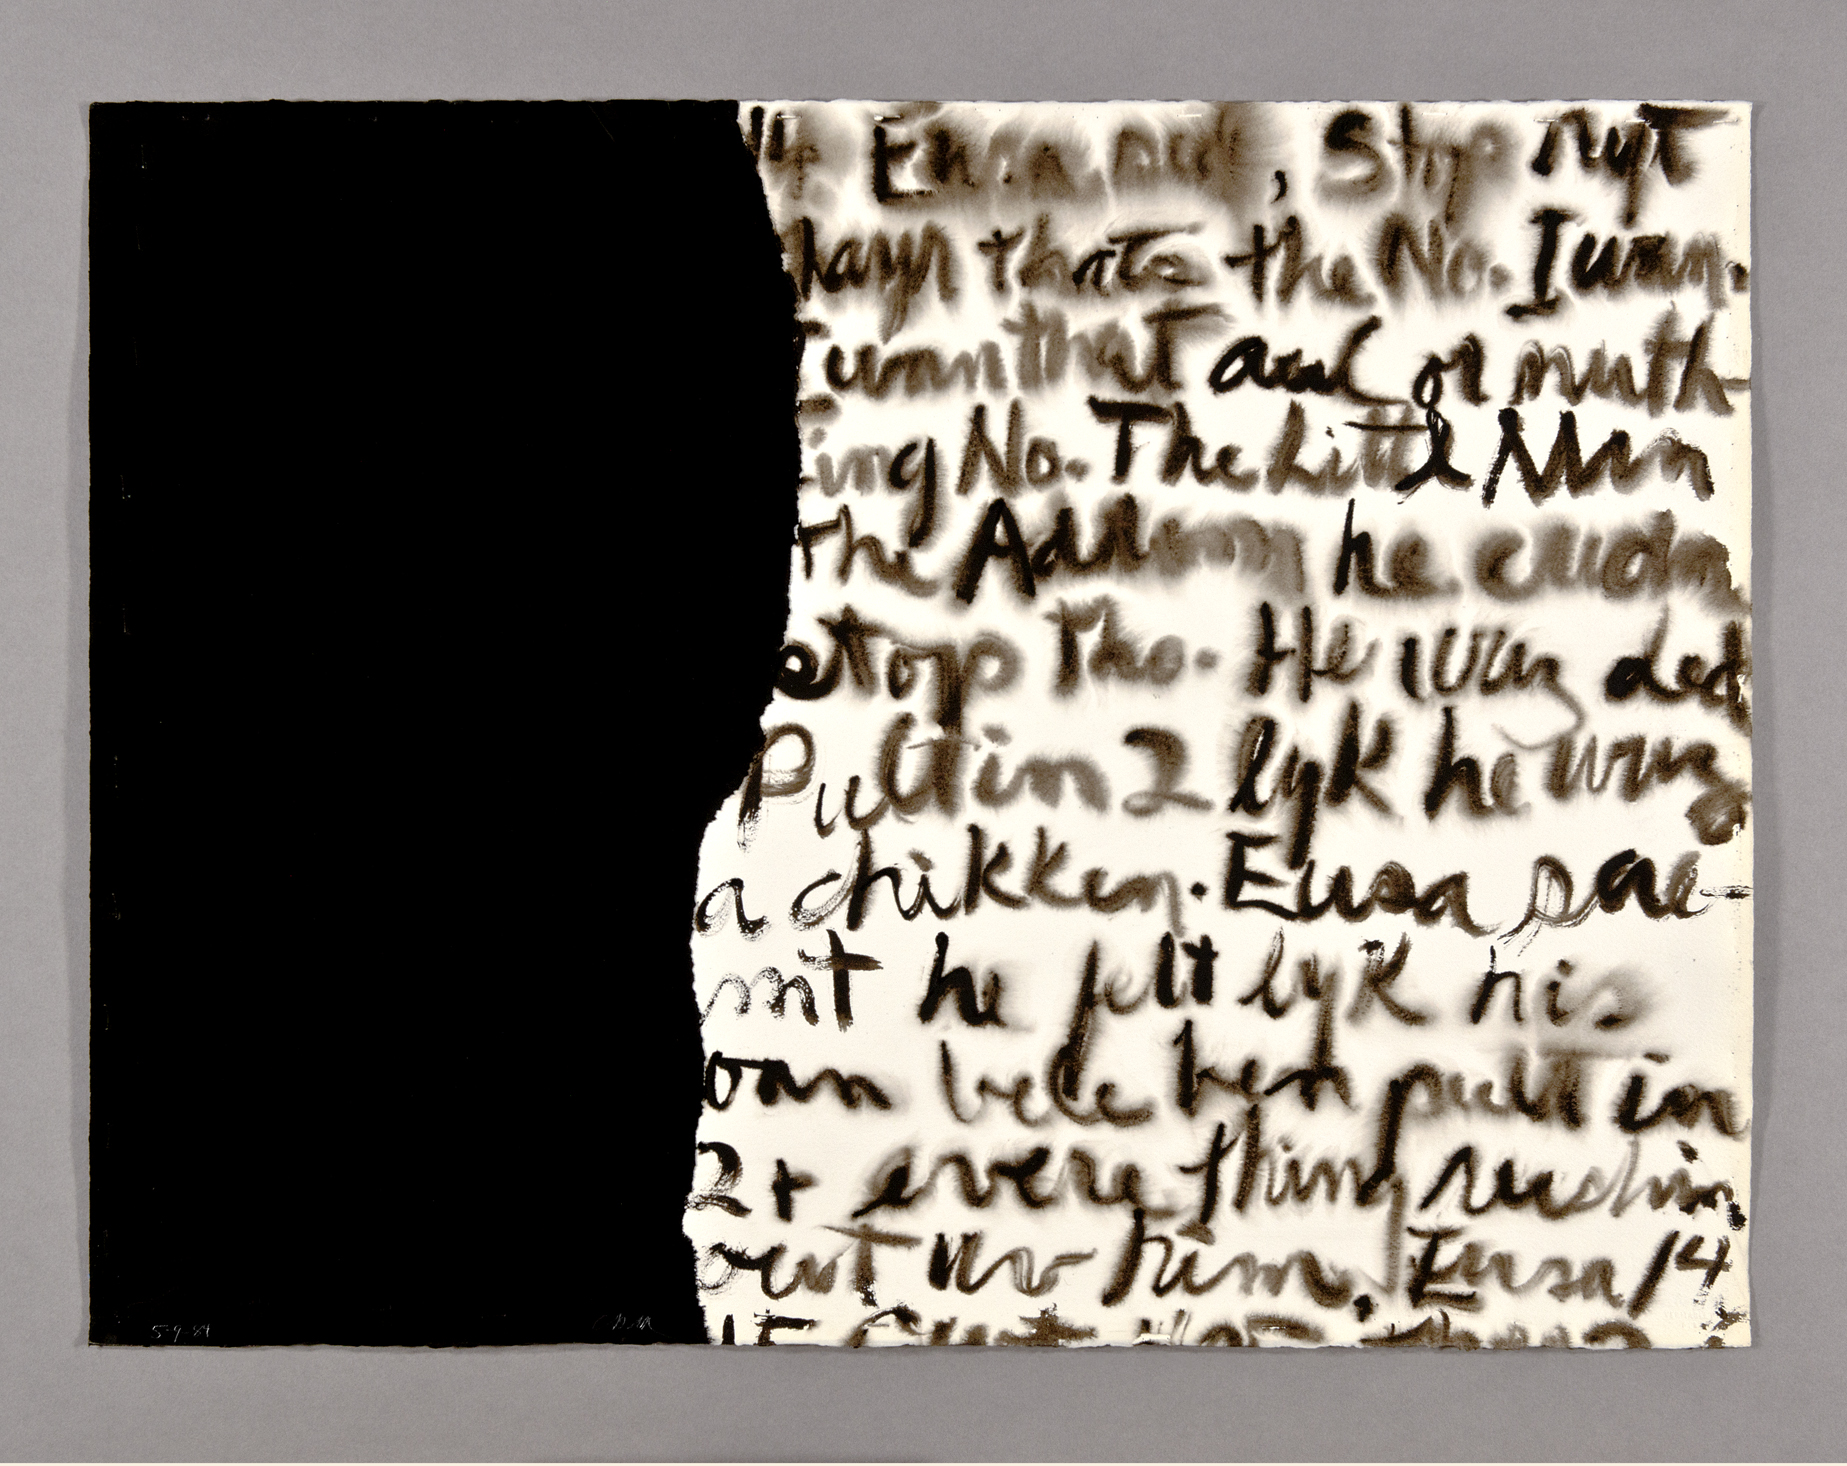 Eusa sed, Stop ryt
thats the No. I wan
wan that aul or nuth
ing No. The Littl Man
the Addom he cudn
stop tho. He wuz ded
Pult in 2 lyk he wuz
a chikken. Eusa sae
mt he felt lyk his
oan bele ben pult in
2 + evere thing rushin
owt uv him. Eusa 14
5-9-84